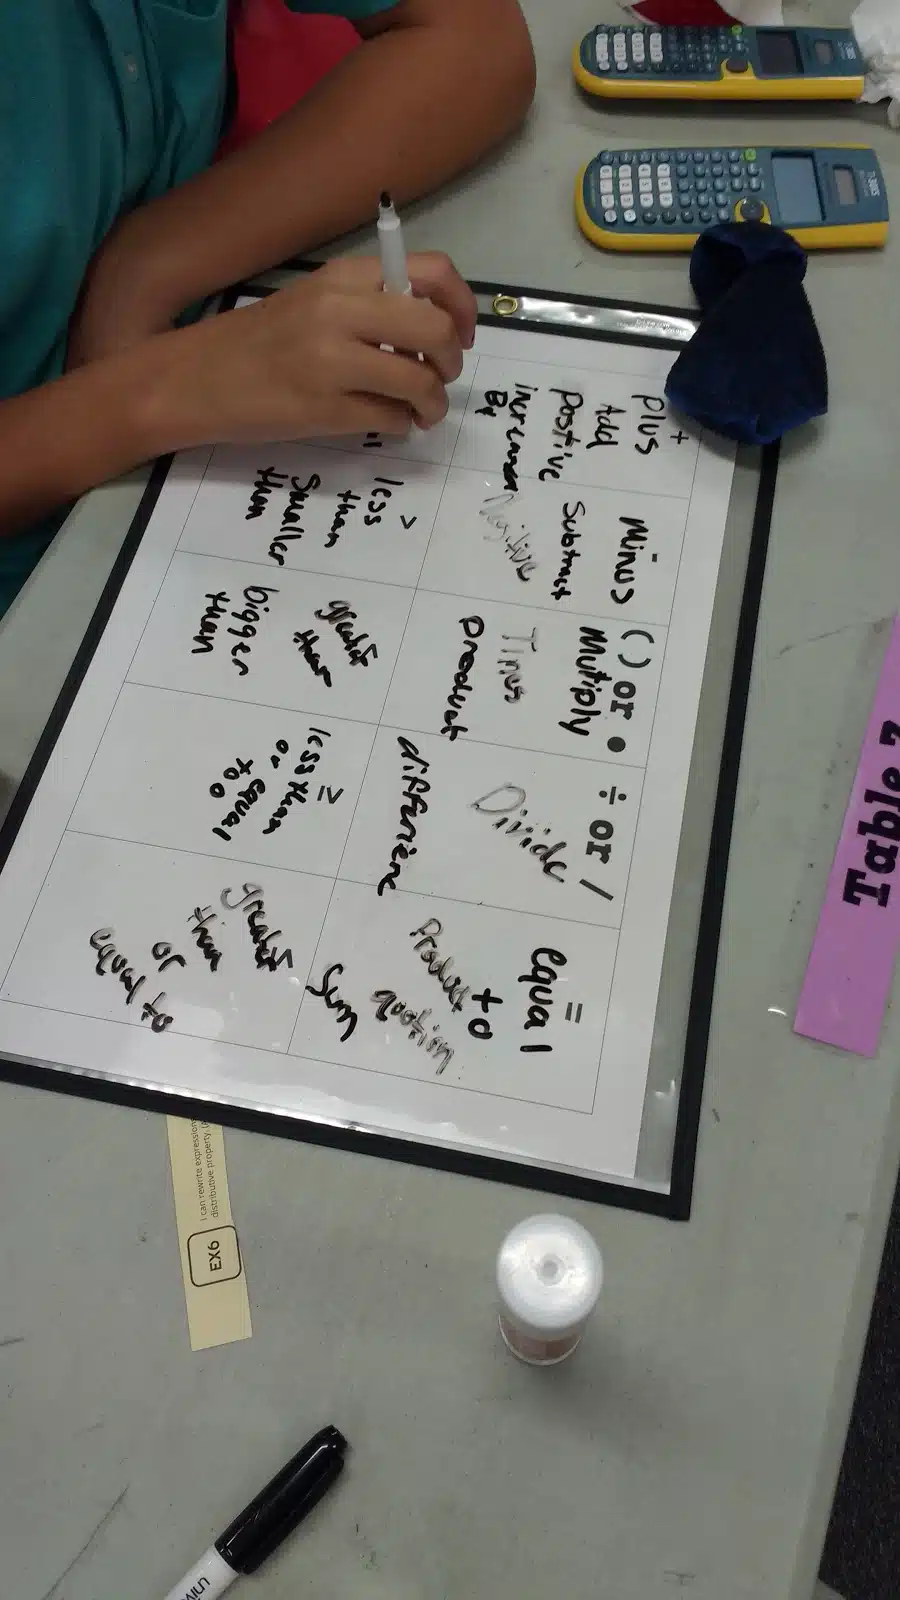 +
plus
Add
Postive
increases
By
-
minus
Subtract
Negitive
( ) or •
Mutiply
Times
product
÷ or /
Divide
differiene
=
equal
to
Product
qootion
Sum
<
less
than
Smaller
than
greater
than
bigger
than
≤
less than
or equal
to
greater
than
or
equal to
Table 7
EX6
I can rewrite expressions
distributive property
univ